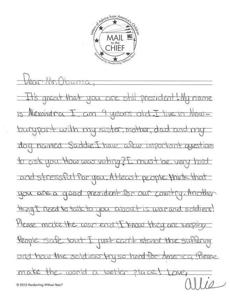 MAIL
to the
CHIEF
Dear Mr. Obama,
It's great that you are still president! My name
is Alexandra I am 9 years old I live in New-
buryport with my sister, mother, dad and my
dog named Saddie I have a few important question
to ask you. How was voting? I must be very hard
and stressful for you. At least people think that
you are a good president for our country. Another
thing I need to talk to you about is war and soldiers!
Please make the war end! I know they are keeping
People safe but I just can't stand the suffering
and how the soldiers try so hard for America. Please
make the world a better place! Love,
Allie
© 2012 Handwriting Without Tears®